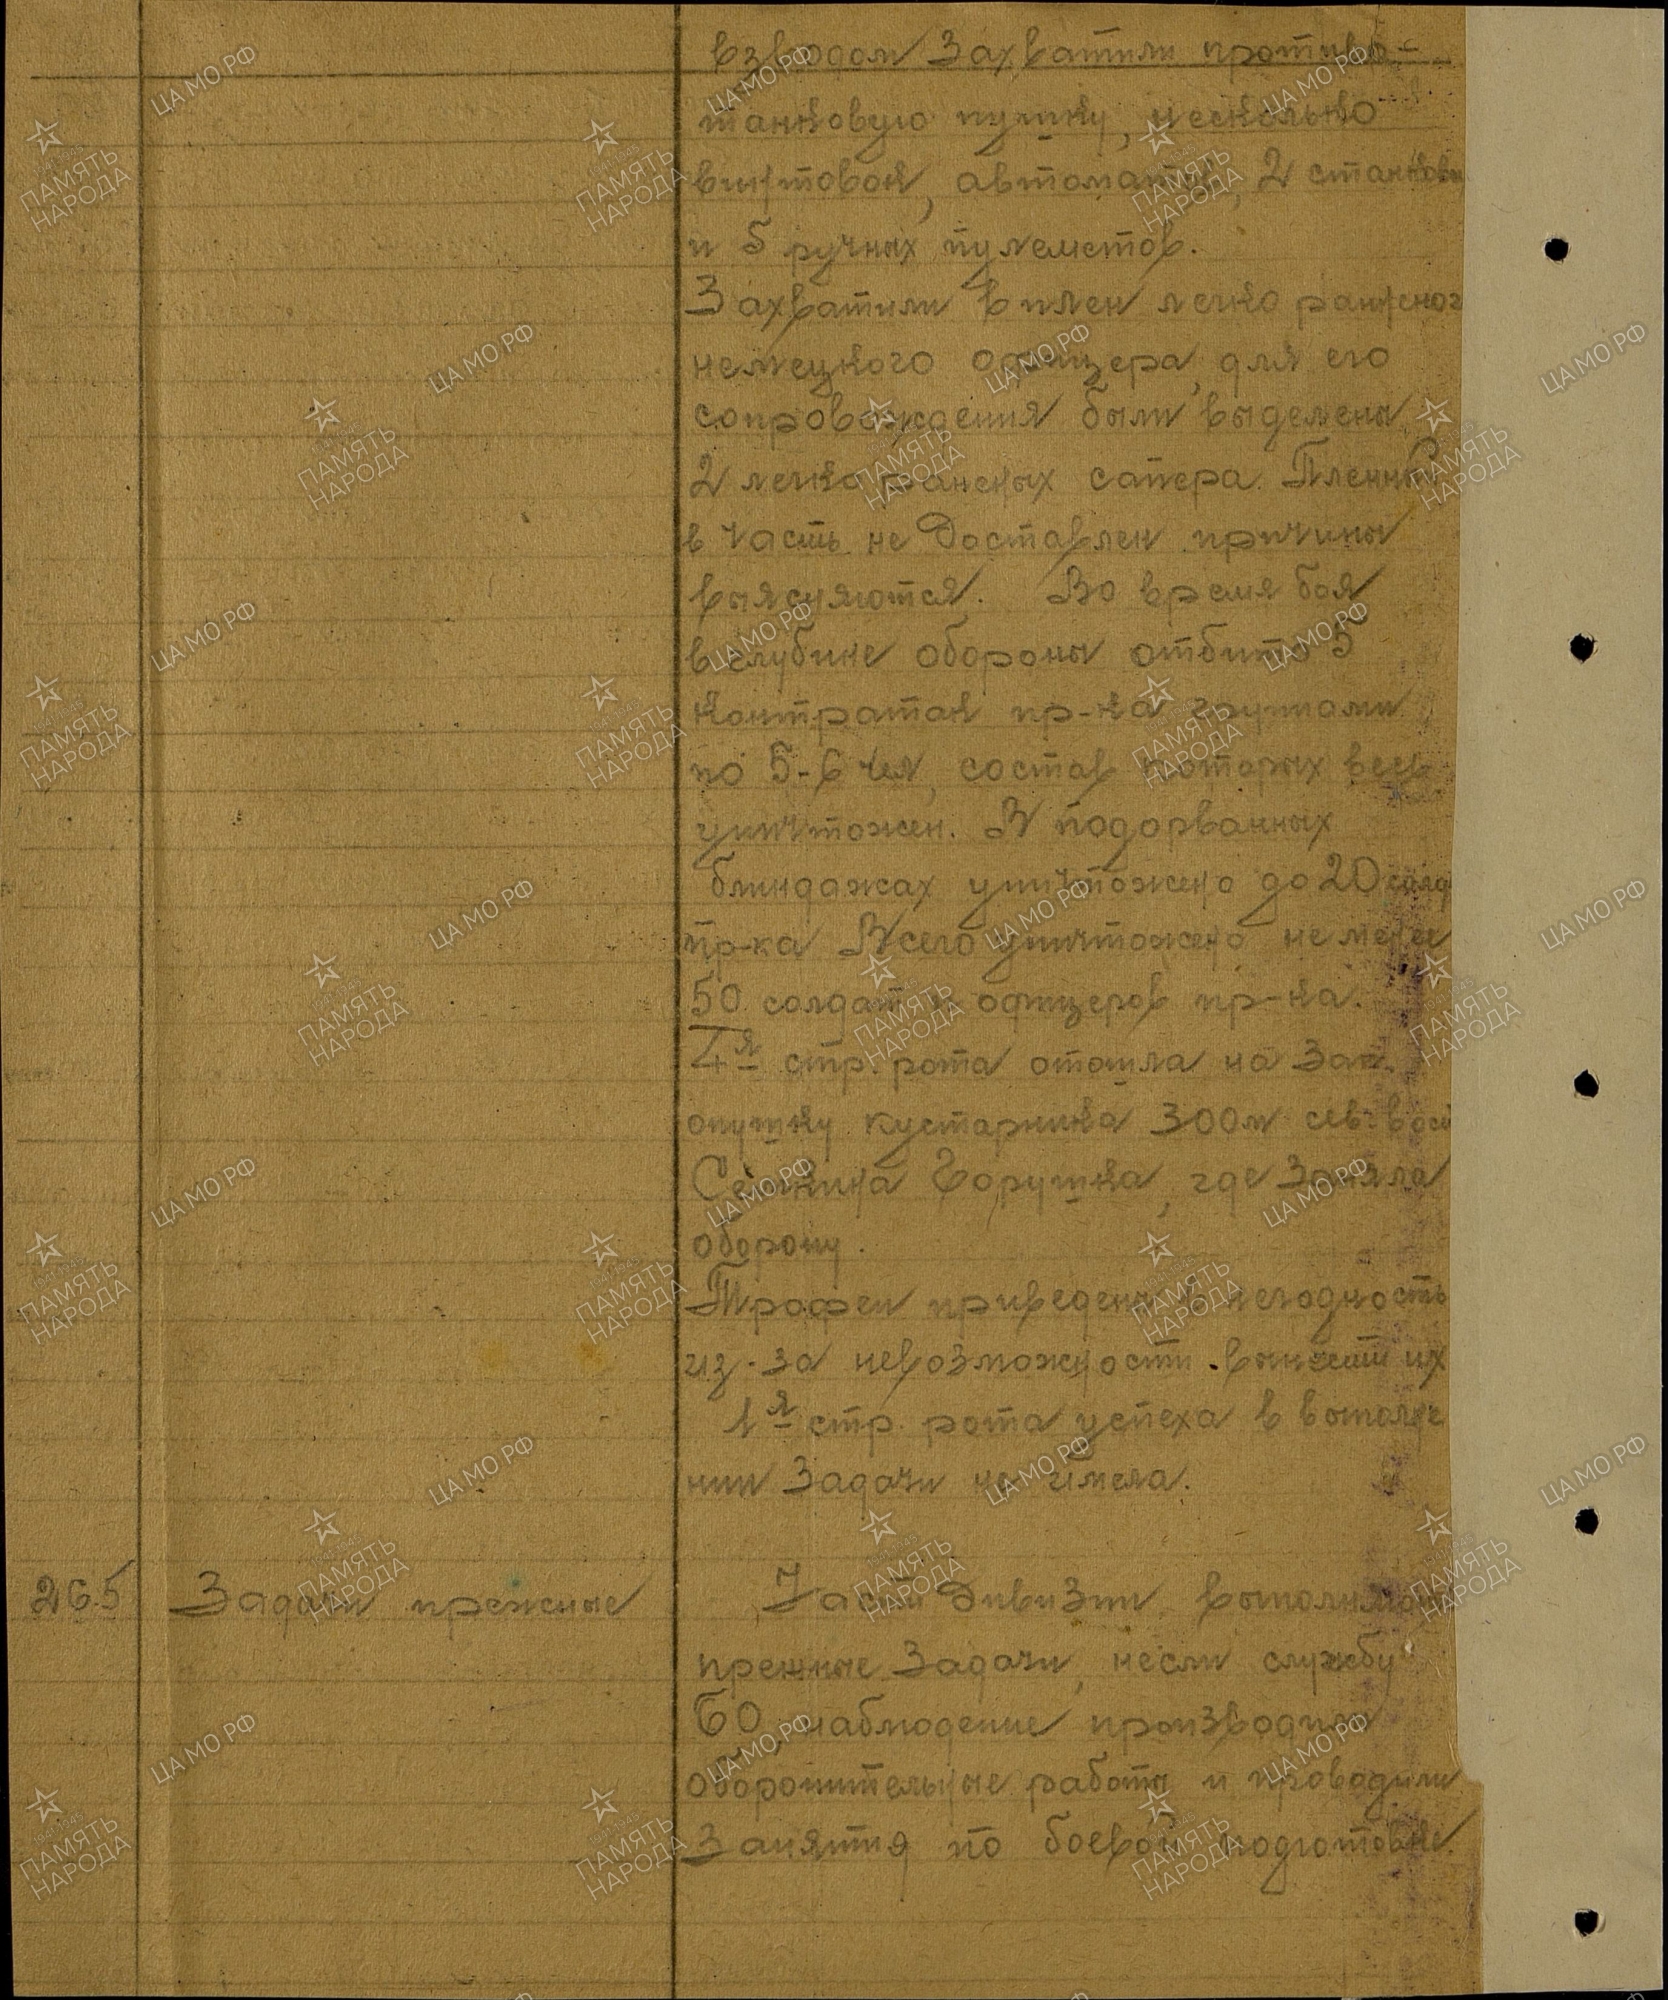 взводом захватили противо-
танковую пушку, несколько
винтовок, автоматов, 2 станков
и 5 ручных пулеметов.
Захватили в плен легко раненог
немецкого офицера, для его
сопровождения были выделены
2 легко раненых сапера. Пленный
в часть не доставлен причины
выясняются. Во время боя
в глубине обороны отбито 5
контратак пр-ка группами
по 5-6 чел, состав которых весь
уничтожен. В подорванных
блиндажах уничтожено до 20 солд
пр-ка Всего уничтожено не менее
50 солдат и офицеров пр-ка.
4я стр. рота отошла на зап.
опушку кустарника 300м сев-вост
Сенькина Горушка, где заняла
оборону.
Трофеи приведены в негодность
из-за невозможности вынести их
1я стр. рота успеха в выполне
нии задачи не имела.
26.5 Задачи прежные Части дивизии выполняли
прежные задачи, несли службу
БО, наблюдение производили
оборонительные работы и проводили
занятия по боевой подготовке.